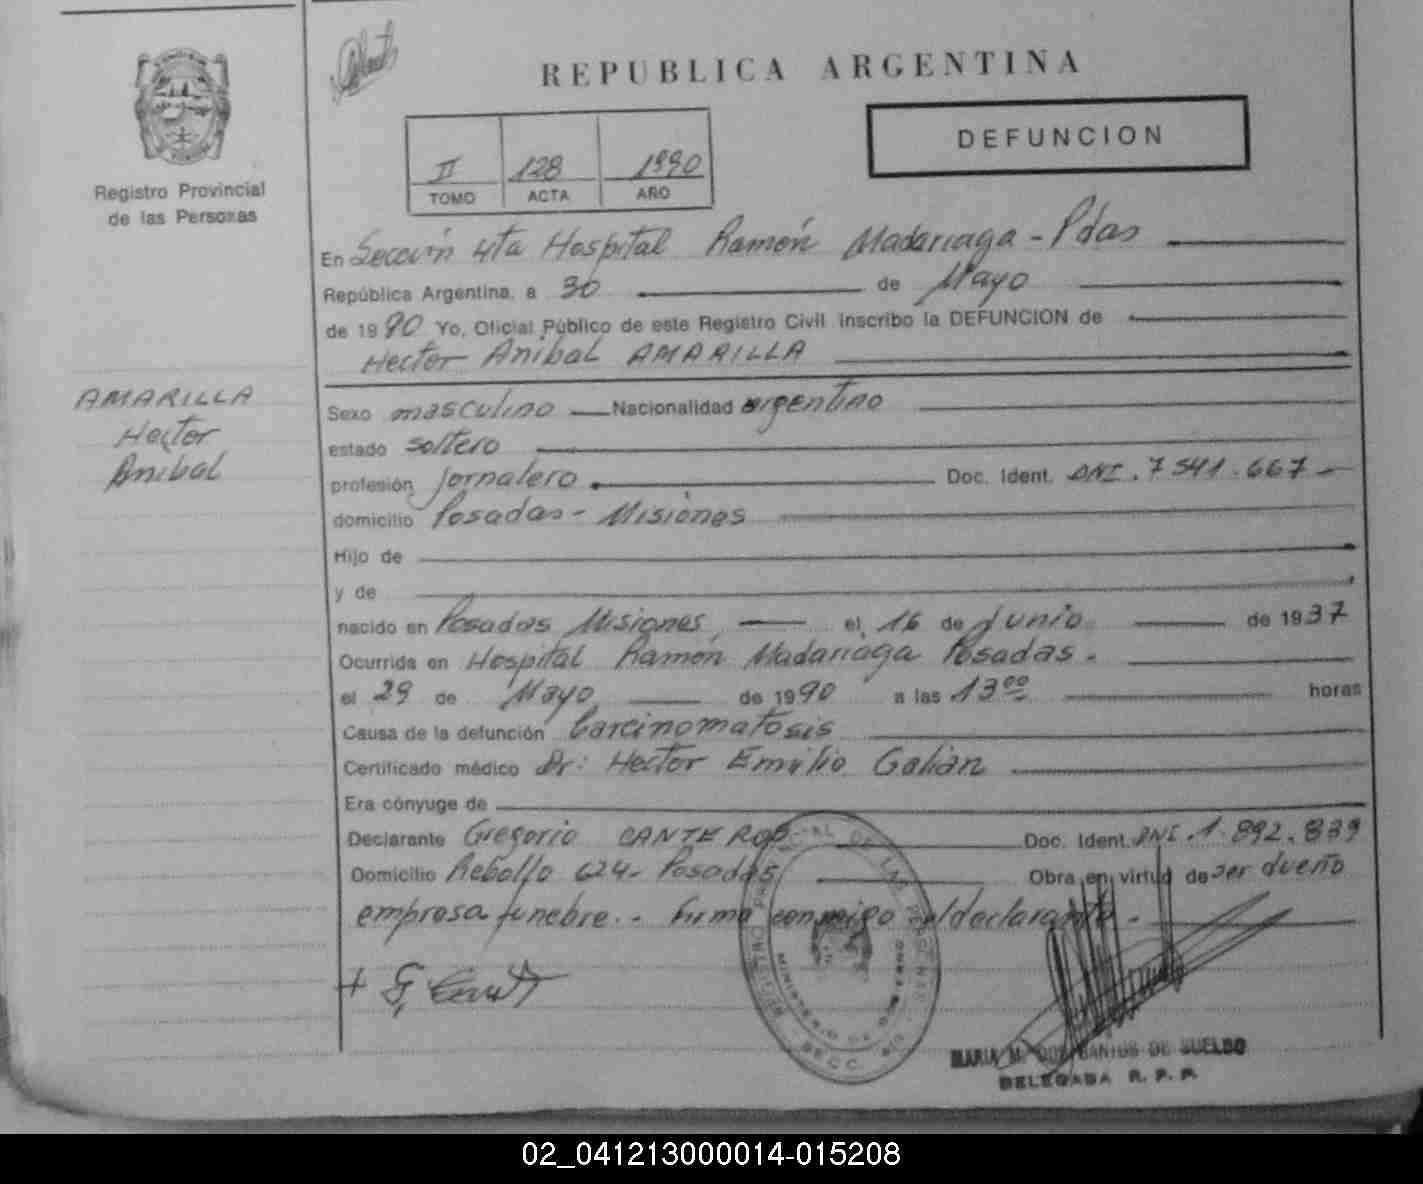 REPUBLICA ARGENTINA
DEFUNCION
II 128 1990
TOMO ACTA AÑO
Registro Provincial
de las Personas
En Sección 4ta Hospital Ramón Madariaga - Pdas
República Argentina, a 30 de Mayo
de 1990 Yo, Oficial Público de este Registro Civil inscribo la DEFUNCION de
Hector Anibal AMARILLA
AMARILLA
Hector
Anibal
Sexo masculino Nacionalidad argentino
estado soltero
profesión Jornalero Doc. Ident. DNI. 7541.667
domicilio Posadas - Misiones
Hijo de
y de
nacido en Posadas Misiones, el, 16 de Junio de 1937
Ocurrida en Hospital Ramón Madariaga Posadas.
el 29 de Mayo de 1990 a las 13 00 horas
Causa de la defunción Carcinomatosis
Certificado médico Dr: Hector Emilio Galián
Era cónyuge de
Declarante Gregorio CANTEROS Doc. Ident. DNI. 1.892.839
Domicilio Rebollo 624- Posadas Obra en virtud de ser dueño
empresa funebre.- firma conmigo el declarante -
REGISTRO PROVINCIAL DE LAS PERSONAS
MINISTERIO DE GOBIERNO
SECC.
MARIA M. DOS SANTOS DE SUELDO
DELEGADA R. P. P.
02_041213000014-015208